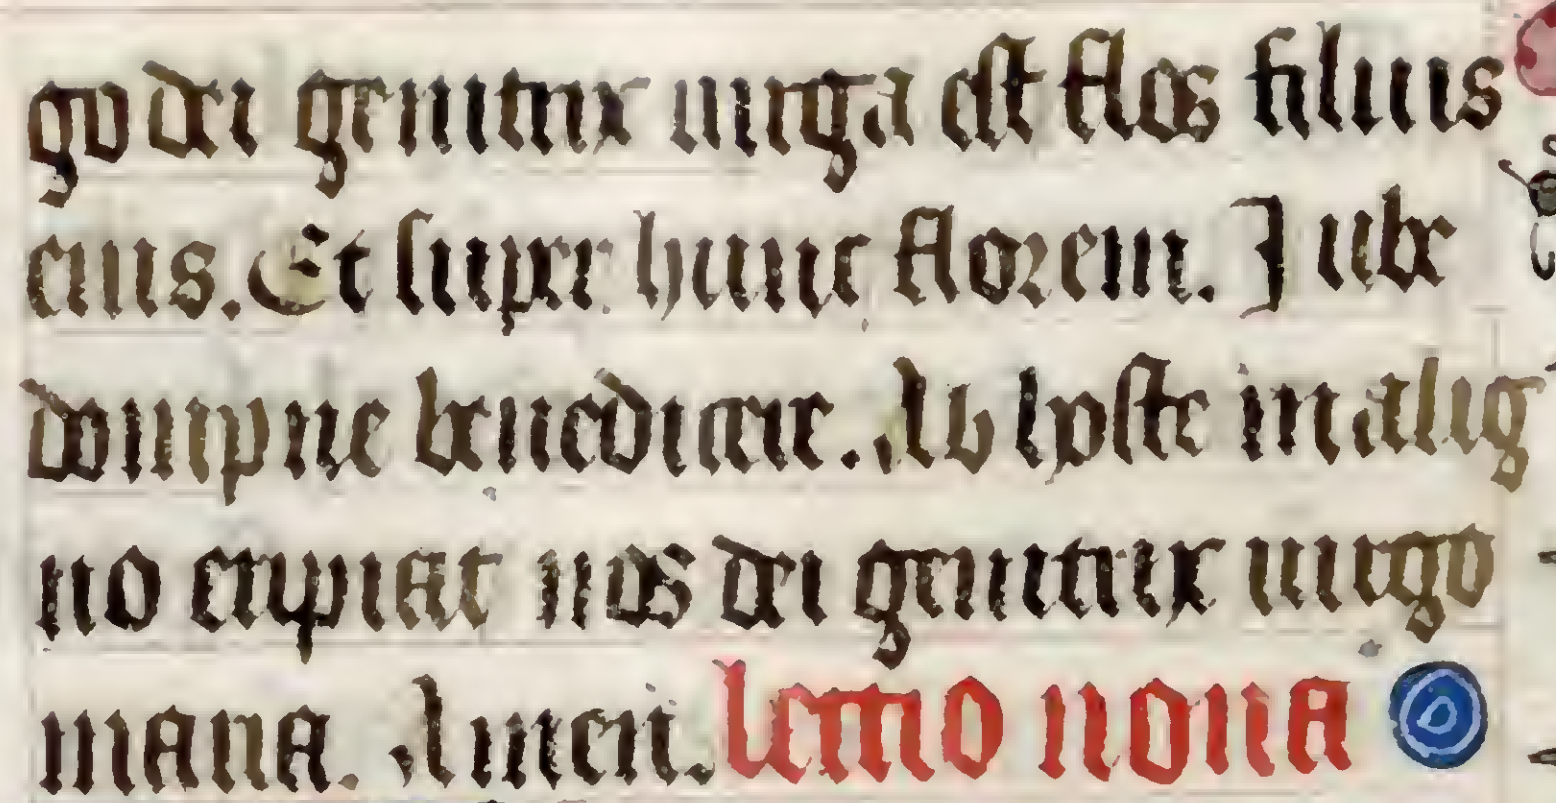 go dei genitrix uirga est flos filius
eius. Et super hunc florem. Iube
dompne benedicere. Ab hoste malig
no eripiat nos dei genitrix uirgo
maria. Amen. lectio nona